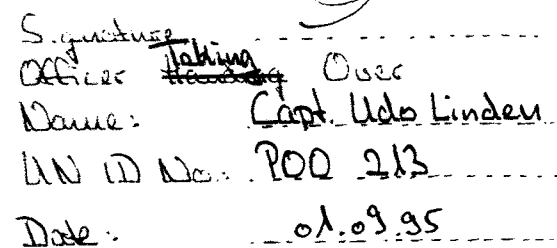 Signature
Officer Taking Over
Name: Capt. Udo Linden
UN ID No.: POQ 213
Date: 01.09.95